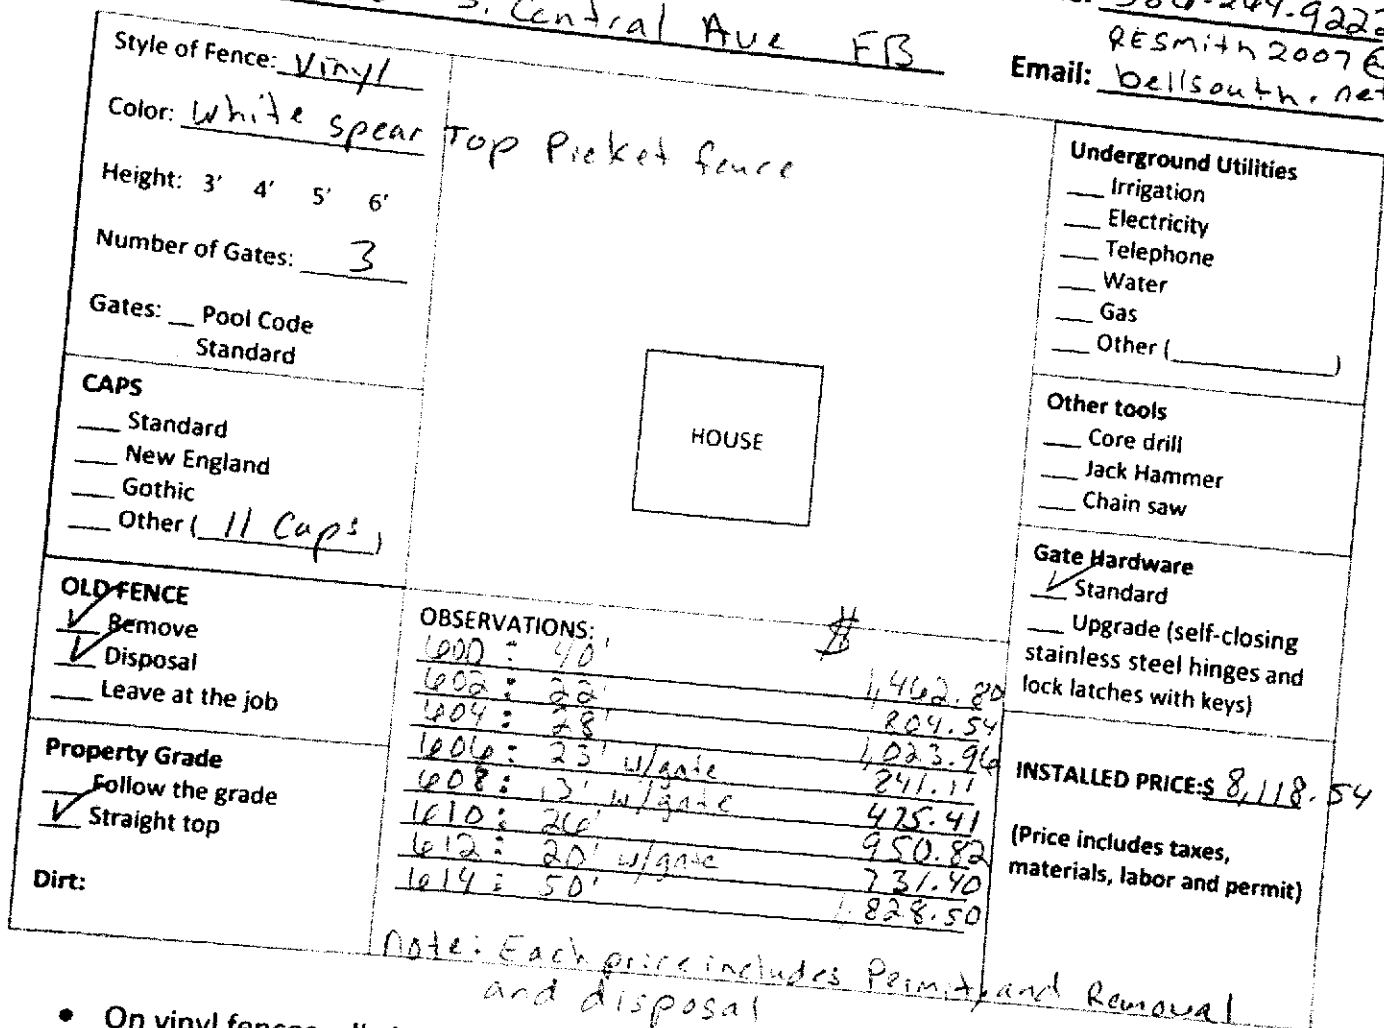 S. Central Ave FB
386-244-9222
RESmith2007@
Email: bellsouth.net
Style of Fence: Vinyl
Color: White Spear Top Picket fence
Height: 3' 4' 5' 6'
Number of Gates: 3
Gates: __ Pool Code
Standard
CAPS
___ Standard
___ New England
___ Gothic
___ Other ( 11 Caps )
OLD FENCE
✓ Remove
✓ Disposal
___ Leave at the job
Property Grade
___ Follow the grade
✓ Straight top
Dirt:
HOUSE
OBSERVATIONS: $
600 : 40' 1,462.80
602 : 22' 804.54
604 : 28' 1,023.96
606 : 23' w/gate 841.11
608 : 13' w/gate 475.41
610 : 26' 950.82
612 : 20' w/gate 731.40
614 : 50' 1,828.50
Note: Each price includes Permit, and Removal
and disposal
Underground Utilities
___ Irrigation
___ Electricity
___ Telephone
___ Water
___ Gas
___ Other (__________)
Other tools
___ Core drill
___ Jack Hammer
___ Chain saw
Gate Hardware
✓ Standard
___ Upgrade (self-closing
stainless steel hinges and
lock latches with keys)
INSTALLED PRICE:$ 8,118.54
(Price includes taxes,
materials, labor and permit)
• On vinyl fences